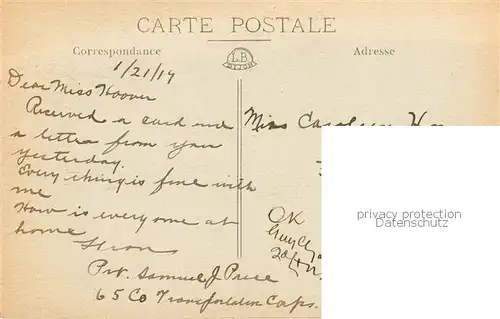 CARTE POSTALE
Correspondance
Adresse
L.B
DIJON
1/21/19
Dear Miss Hoover
Received a card and
a letter from you
yesterday.
Every thing is fine with
me
How is every one at
home
From
Pvt. Samuel J. Price
65 Co Transportation Corps.
Miss Carolyn
OK
privacy protection
www.oldthing.de